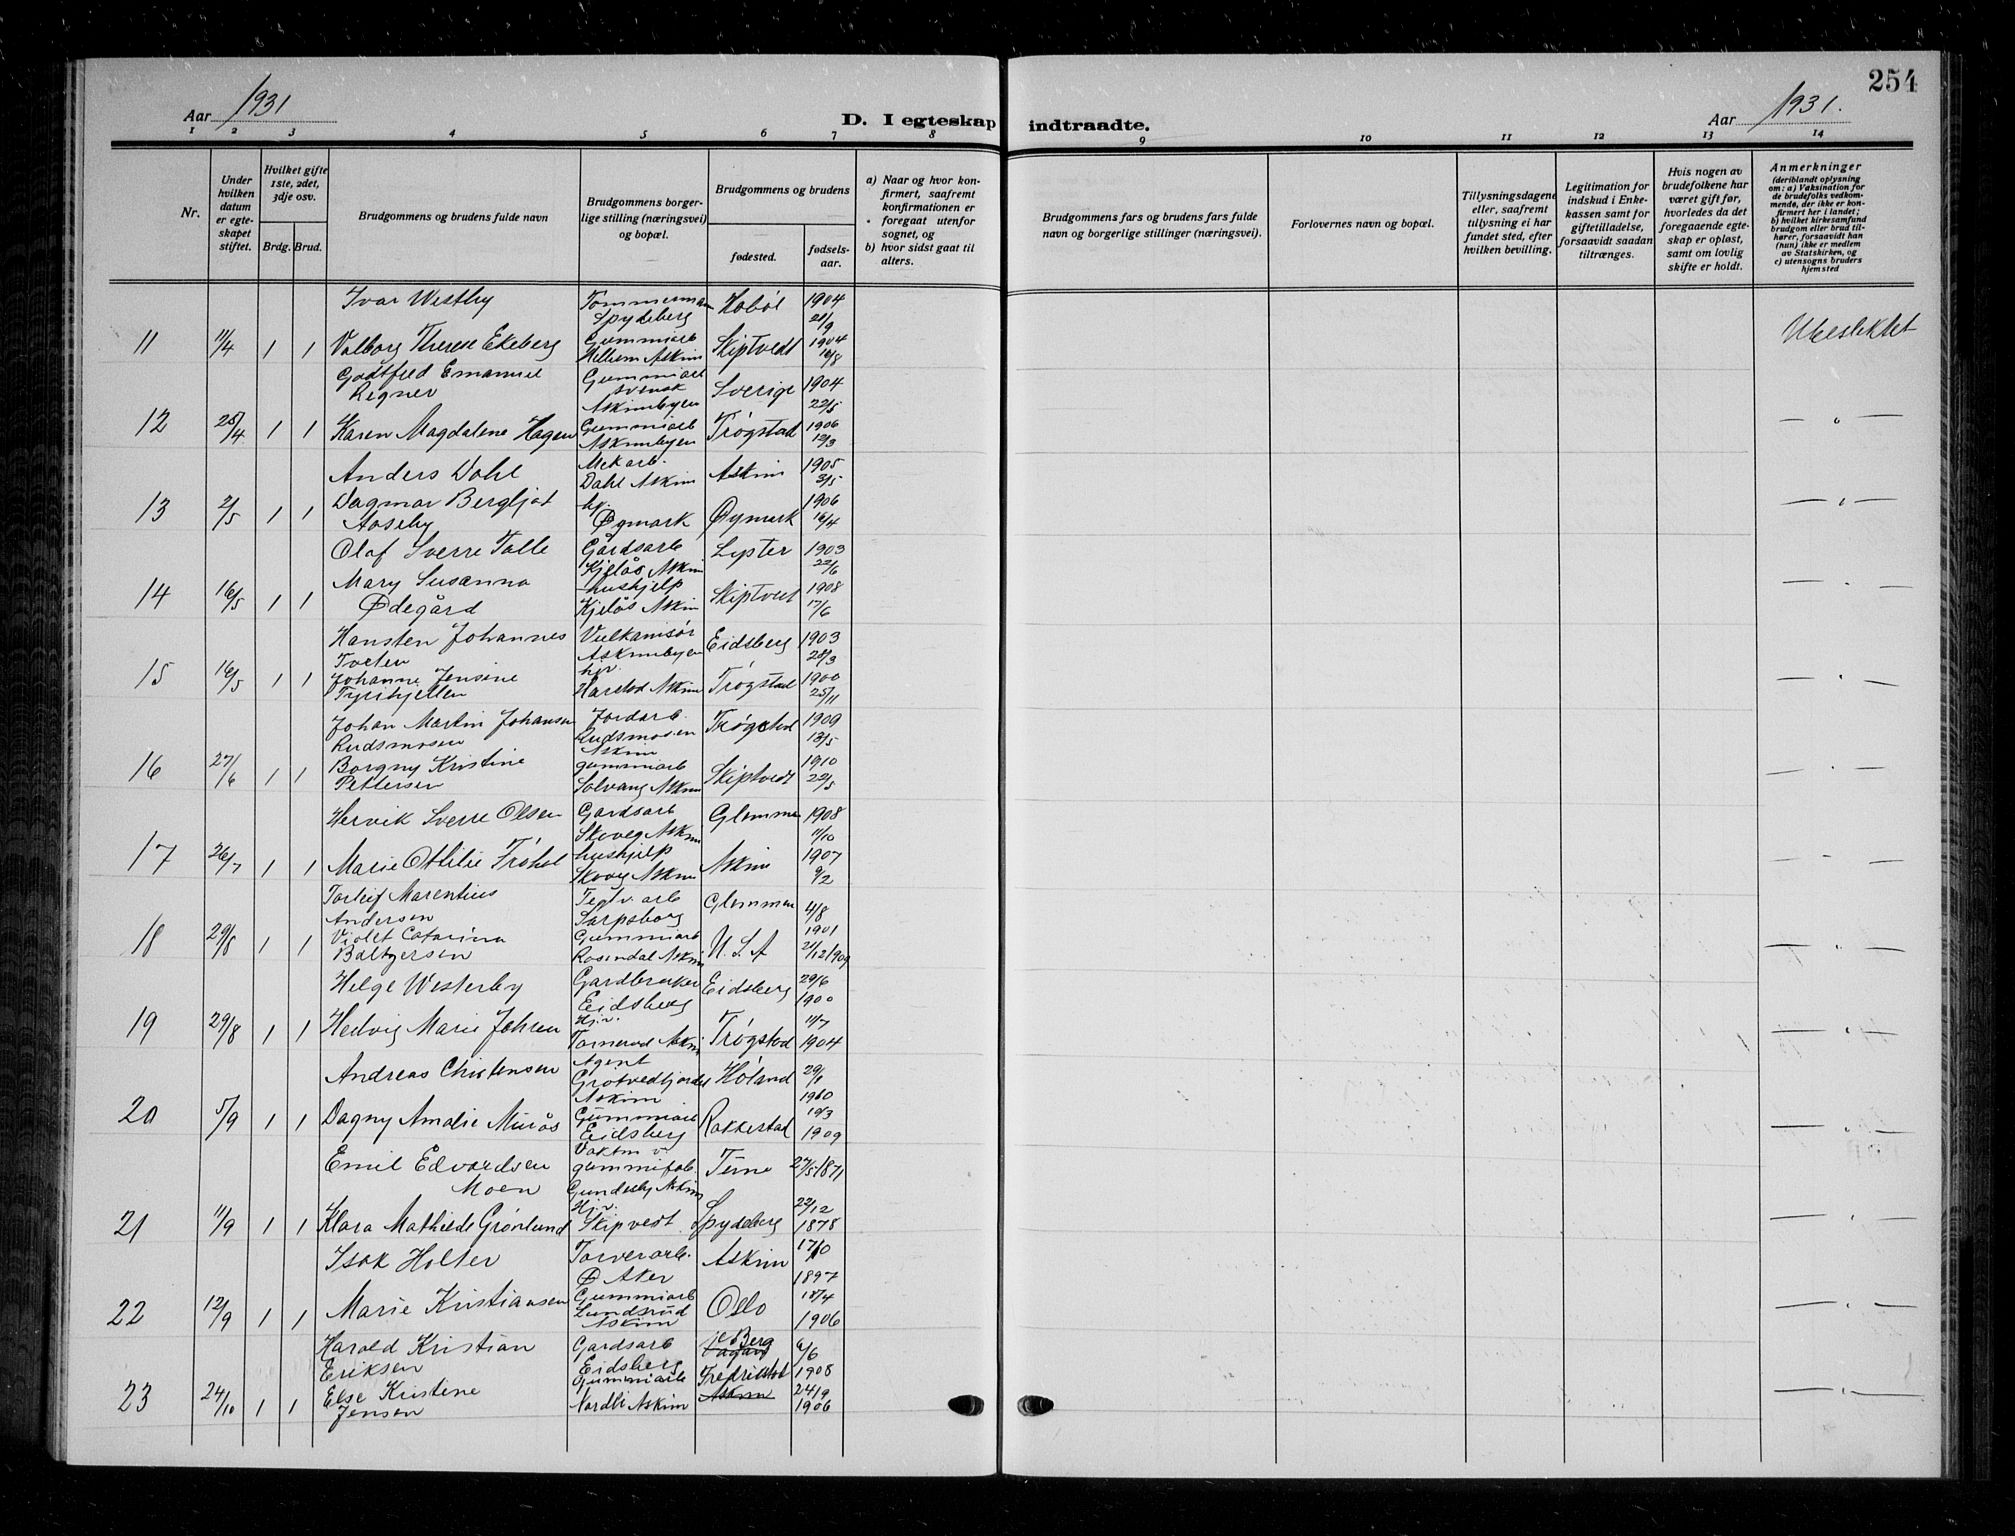 254
Aar 1931
D. I egteskap indtraadte.
Aar 1931.
1 2 3 4 5 6 7 8 9 10 11 12 13 14
Nr.
Under hvilken datum er egteskapet stiftet.
Hvilket gifte 1ste, 2det, 3dje osv.
Brdg. Brud.
Brudgommens og brudens fulde navn
Brudgommens borgerlige stilling (næringsvei) og bopæl.
Brudgommens og brudens
fødested.
fødselsaar.
a) Naar og hvor konfirmert, saafremt konfirmationen er foregaat utenfor sognet, og
b) hvor sidst gaat til alters.
Brudgommens fars og brudens fars fulde navn og borgerlige stillinger (næringsvei).
Forlovernes navn og bopæl.
Tillysningsdagene eller, saafremt tillysning ei har fundet sted, efter hvilken bevilling.
Legitimation for indskud i Enkekassen samt for giftetilladelse, forsaavidt saadan tiltrænges.
Hvis nogen av brudefolkene har været gift før, hvorledes da det foregaaende egteskap er opløst, samt om lovlig skifte er holdt.
Anmerkninger
(deriblandt oplysning om: a) Vaksination for de brudefolks vedkommende, der ikke er konfirmert her i landet; b) hvilket kirkesamfund brudgom eller brud tilhører, forsaavidt han (hun) ikke er medlem av Statskirken, og c) utensogns bruders hjemsted
Ivar Westby Tømmermann Spydeberg Hobøl 1904 21/9
11 11/4 1 1 Valborg Therese Ekeberg Gummiarb Askim Skiptvedt 1904 16/8 Ubeslektet
Godtfred Emanuel Legner Gummiarb svensk Askimbyen Sverige 1904 22/5
12 25/4 1 1 Karen Magdalene Hagen Gummiarb Askimbyen Trøgstad 1906 12/3 — " —
Anders Dahl Mek arb. Dahl Askim Askim 1905 3/5
13 2/5 1 1 Dagmar Bergljot Aaseby Øymark Øymark 1906 16/4 — " —
Olaf Sverre Talle Gårdsarb Kjelås Askim Lyster 1903 22/6
14 16/5 1 1 Mary Susanna Ødegård hushjelp Kjelås Askim Skiptvet 1908 17/6 — " —
Hansten Johannes Tveten Vulkanisør Askimbyen Eidsberg 1903 28/3
15 16/5 1 1 Johanne Jensine Tyrihjellen Askim Trøgstad 1900 25/11 — " —
Johan Martin Johansen Rudsmosen Jordarb. Rudsmosen Askim Trøgstad 1909 13/5
16 27/6 1 1 Borgny Kristine Pettersen gummiarb Solvang Askim Skiptvedt 1910 22/5 — " —
Hervik Sverre Olsen Gardsarb Askim Glemmen 1908 11/10
17 26/7 1 1 Marie Ottilie Trøhol hushjelp Askim Askim 1907 9/2 — " —
Torleif Marentius Andersen Teglv. arb Sarpsborg Glemmen 4/8 1901
18 29/8 1 1 Violet Catarina Baltzersen Gummiarb Rosendal Askim U. S. A 21/12 1909 — " —
Helge Westerby Gardbruker Eidsberg Eidsberg 29/6 1900
19 29/8 1 1 Hedvig Marie Johren Hjv. Tornerud Askim Trøgstad 11/7 1904 — " —
Andreas Christensen Agent Grøtvedtjordet Askim Høland 29/1 1900
20 5/9 1 1 Dagny Amalie Murås Gummiarb Eidsberg Rakkestad 10/3 1909 — " —
Emil Edvardsen Moen Vaktm v gummifab. Gundeby Askim 27/5 1871
21 11/9 1 1 Klara Mathilde Grønlund Hjv. Skipvedt Spydeberg 22/12 1878 — " —
Isak Holter Ø Aker Askim 17/10 1897
22 12/9 1 1 Marie Kristiansen Gummiarb Lundsrud Askim Oslo 18/4 1906 — " —
Harald Kristian Eriksen Gardsarb Eidsberg Berg 6/6 1908
23 24/10 1 1 Else Kristine Jensen Gummiarb Nordli Askim Fredrikstad Askim 24/9 1906 — " —